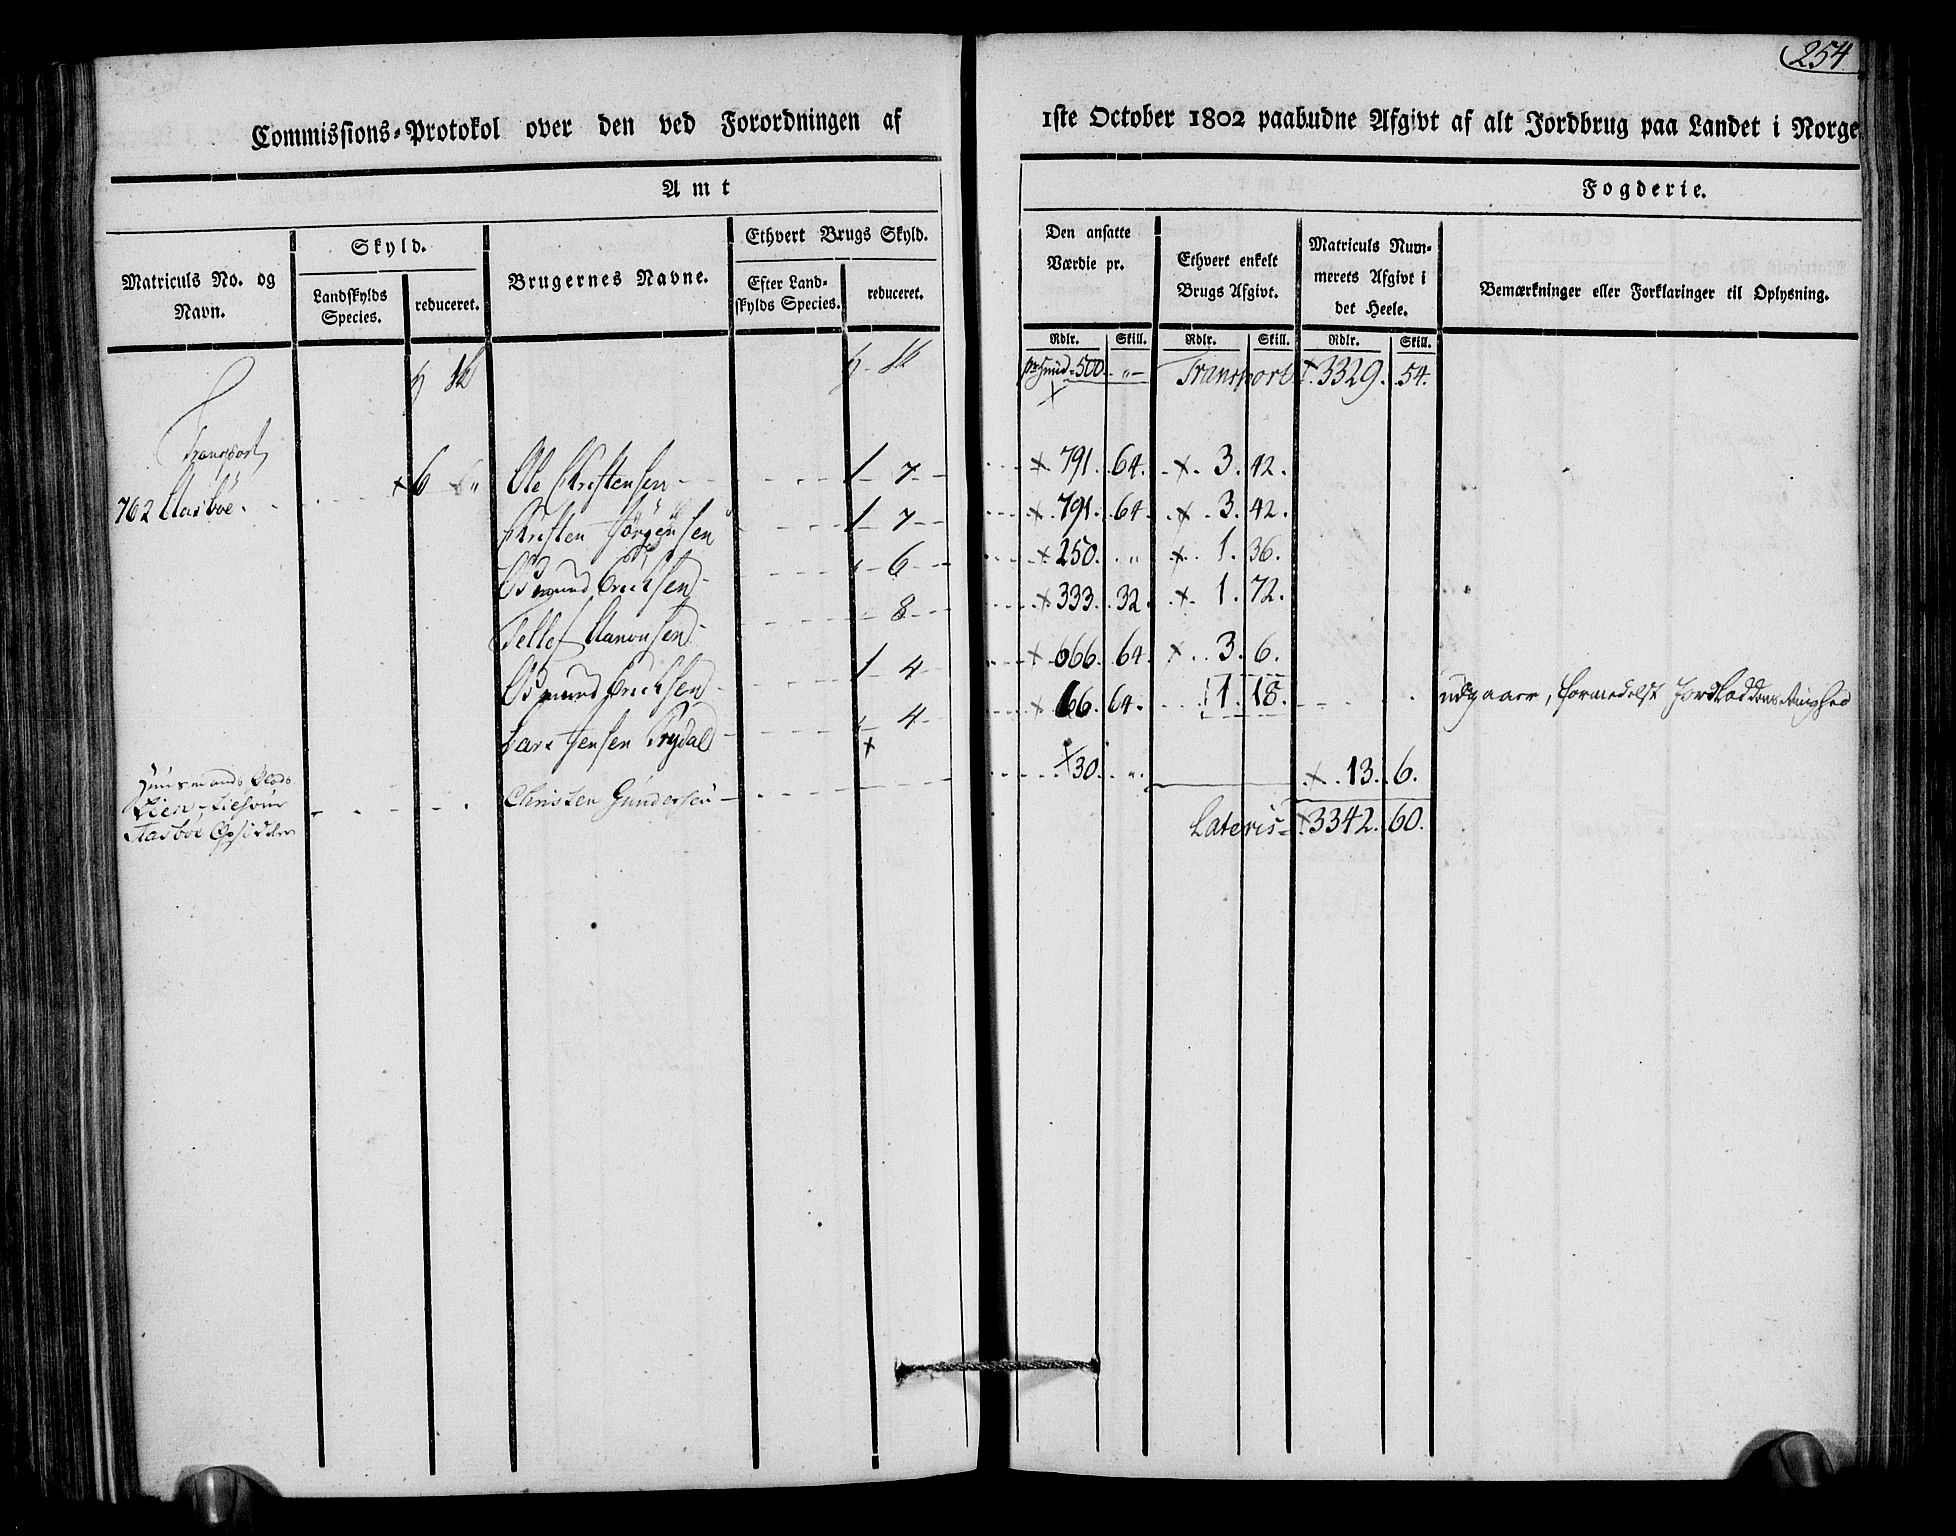 254
Commissions-Protokol over den ved Forordningen af 1ste October 1802 paabudne Afgivt af alt Jordbrug paa Landet i Norge.
Amt Fogderie.
Matriculs No. og Navn.
Skyld.
Landskylds Species.
reduceret.
Brugernes Navne.
Ethvert Brugs Skyld.
Efter Landskylds Species.
reduceret.
Den ansatte Værdie pr.
Rdlr. Skill.
Ethvert enkelt Brugs Afgivt.
Rdlr. Skill.
Matriculs Nummerets Afgivt i det Heele.
Rdlr. Skill.
Bemærkninger eller Forklaringer til Oplysning.
Transport
pr hud = 500 „ Transport 3329. 54.
762 Aasbøe 6 „ Ole Christensen 1 7 791. 64. 3. 42.
Christen Jörgensen 1 7 791. 64. 3. 42.
Osmund Erichsen „ 6 250. „ 1. 36.
Tellef Aanonsen 8 333. 32. 1. 72.
Osmund Erichsen 1 4 666. 64. 3. 6.
Lars Jensen Trydal „ 4 66. 64. 1. 18. udgaaer, formedelst
Huusmands Plads
Lien
Aasbøe Christen Gundersen 30. „ 13. 6.
Lateris = 3342. 60.